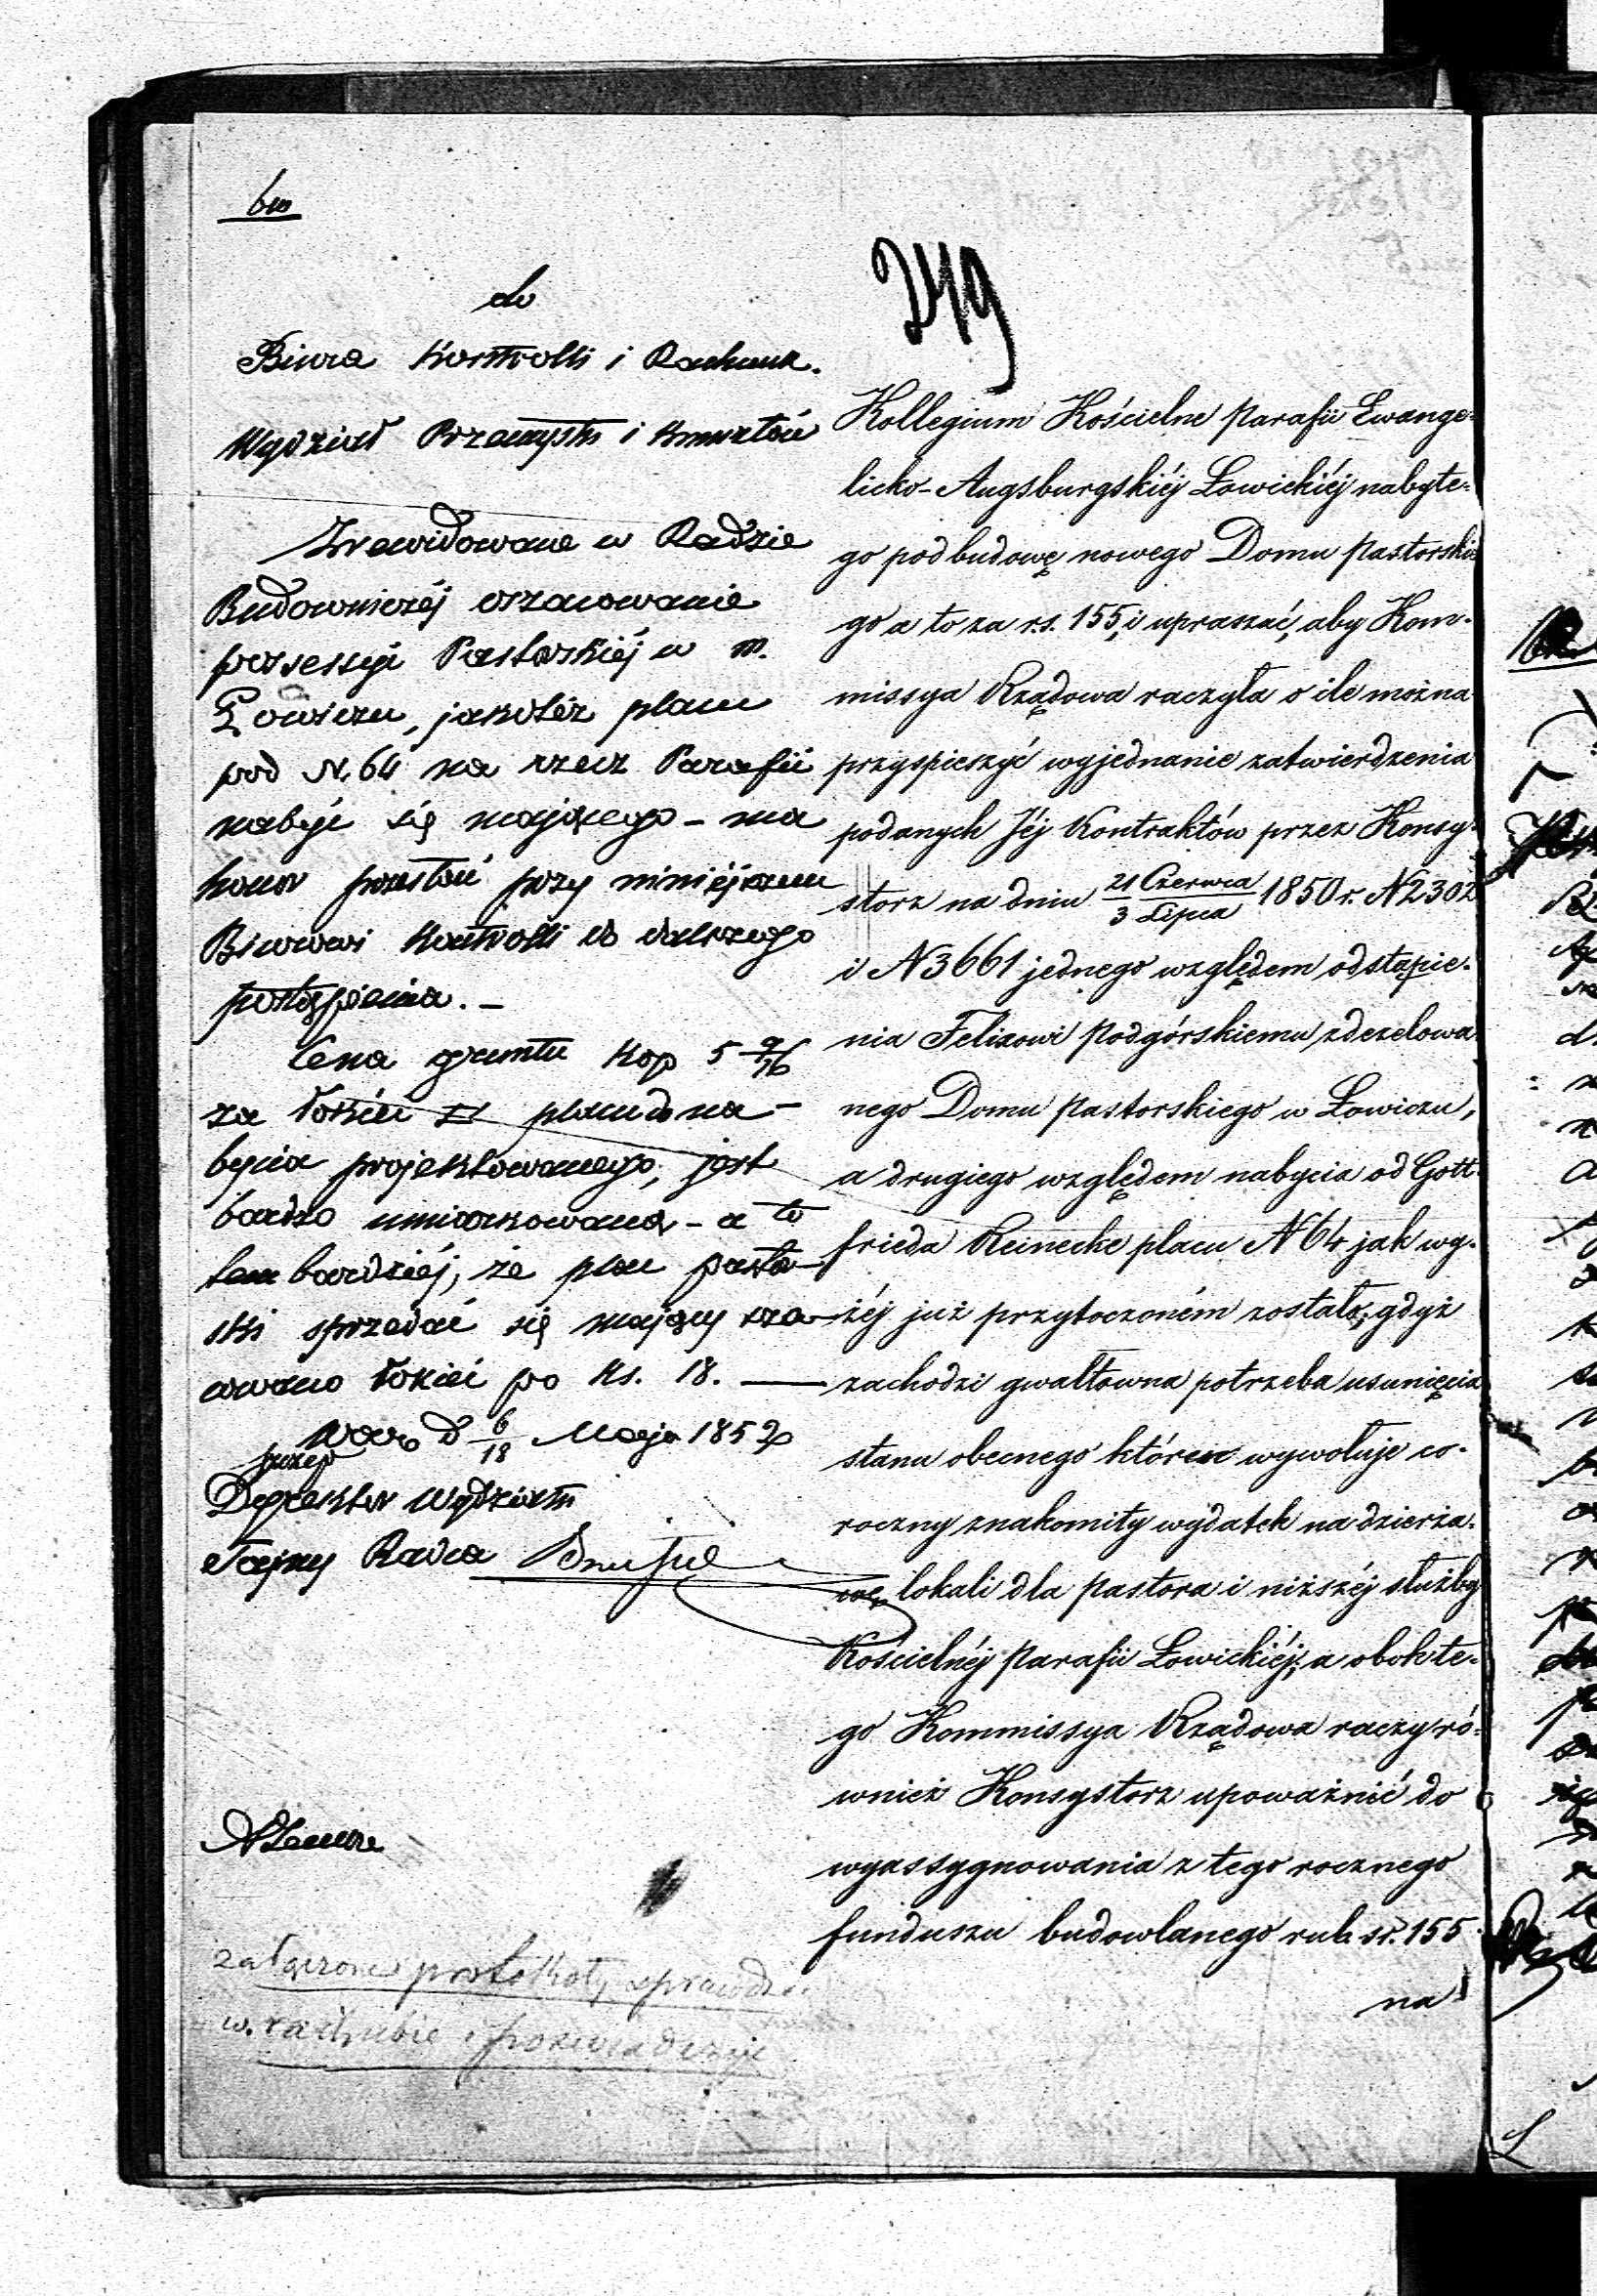 do
Biura Kontrolli i Rachunk.
Wydział Przemysłu i Kunsztów
Zrewidowane w Radzie
Budowniczéj oszacowanie
possessyi Pastorskiéj w m.
Łowiczu, jakotéż placu
pod N. 64 na rzecz Parafii
nabyć się mającego - ma
honor przesłać przy niniéjszem
Biurowi Kontrolli do dalszego
postąpienia. -
Cena gruntu kop 5 9/16
za łokieć □ placu do na-
bycia projektowanego, jest
bardzo umiarkowaną - a to
tem bardziéj, że plac pastor-
ski sprzedać się mający sza-
cowano łokieć po ks. 18. —
Wars. d 6/18 Maja 1852
Dyrektor Wydziału
Tajny Radca
załączone protokoły sprawdzi.
w. rachubie i poświadczyć
249
Kollegium Kościelne Parafii Ewange-
licko-Augsburgskiéj Łowickiéj nabyte-
go pod budowę nowego Domu Pastorskie
go a to za r.s. 155, i upraszać, aby Kom-
missya Rządowa raczyła o ile można
przyspieszyć wyjednanie zatwierdzenia
podanych Jéj Kontraktów przez Konsy-
storz na dniu 21 Czerwca/3 Lipca 1850 r. N 2302
i N 3661 jednego względem odstąpie-
nia Felixowi Podgórskiemu zdezelowa-
nego Domu Pastorskiego w Łowiczu,
a drugiego względem nabycia od Gott-
frieda Reinecke placu N 64 jak wy-
żéj już przytoczoném zostało, gdyż
zachodzi gwałtowna potrzeba usunięcia
stanu obecnego któren wywołuje co-
roczny znakomity wydatek na dzierża-
wę lokali dla Pastora i niższéj służby
Kościelnéj Parafii Łowickiéj; a obok te-
go Kommissya Rządowa raczy ró-
wnież Konsystorz upoważnić do
wyassygnowania z tego rocznego
funduszu budowlanego rub. sr. 155
na